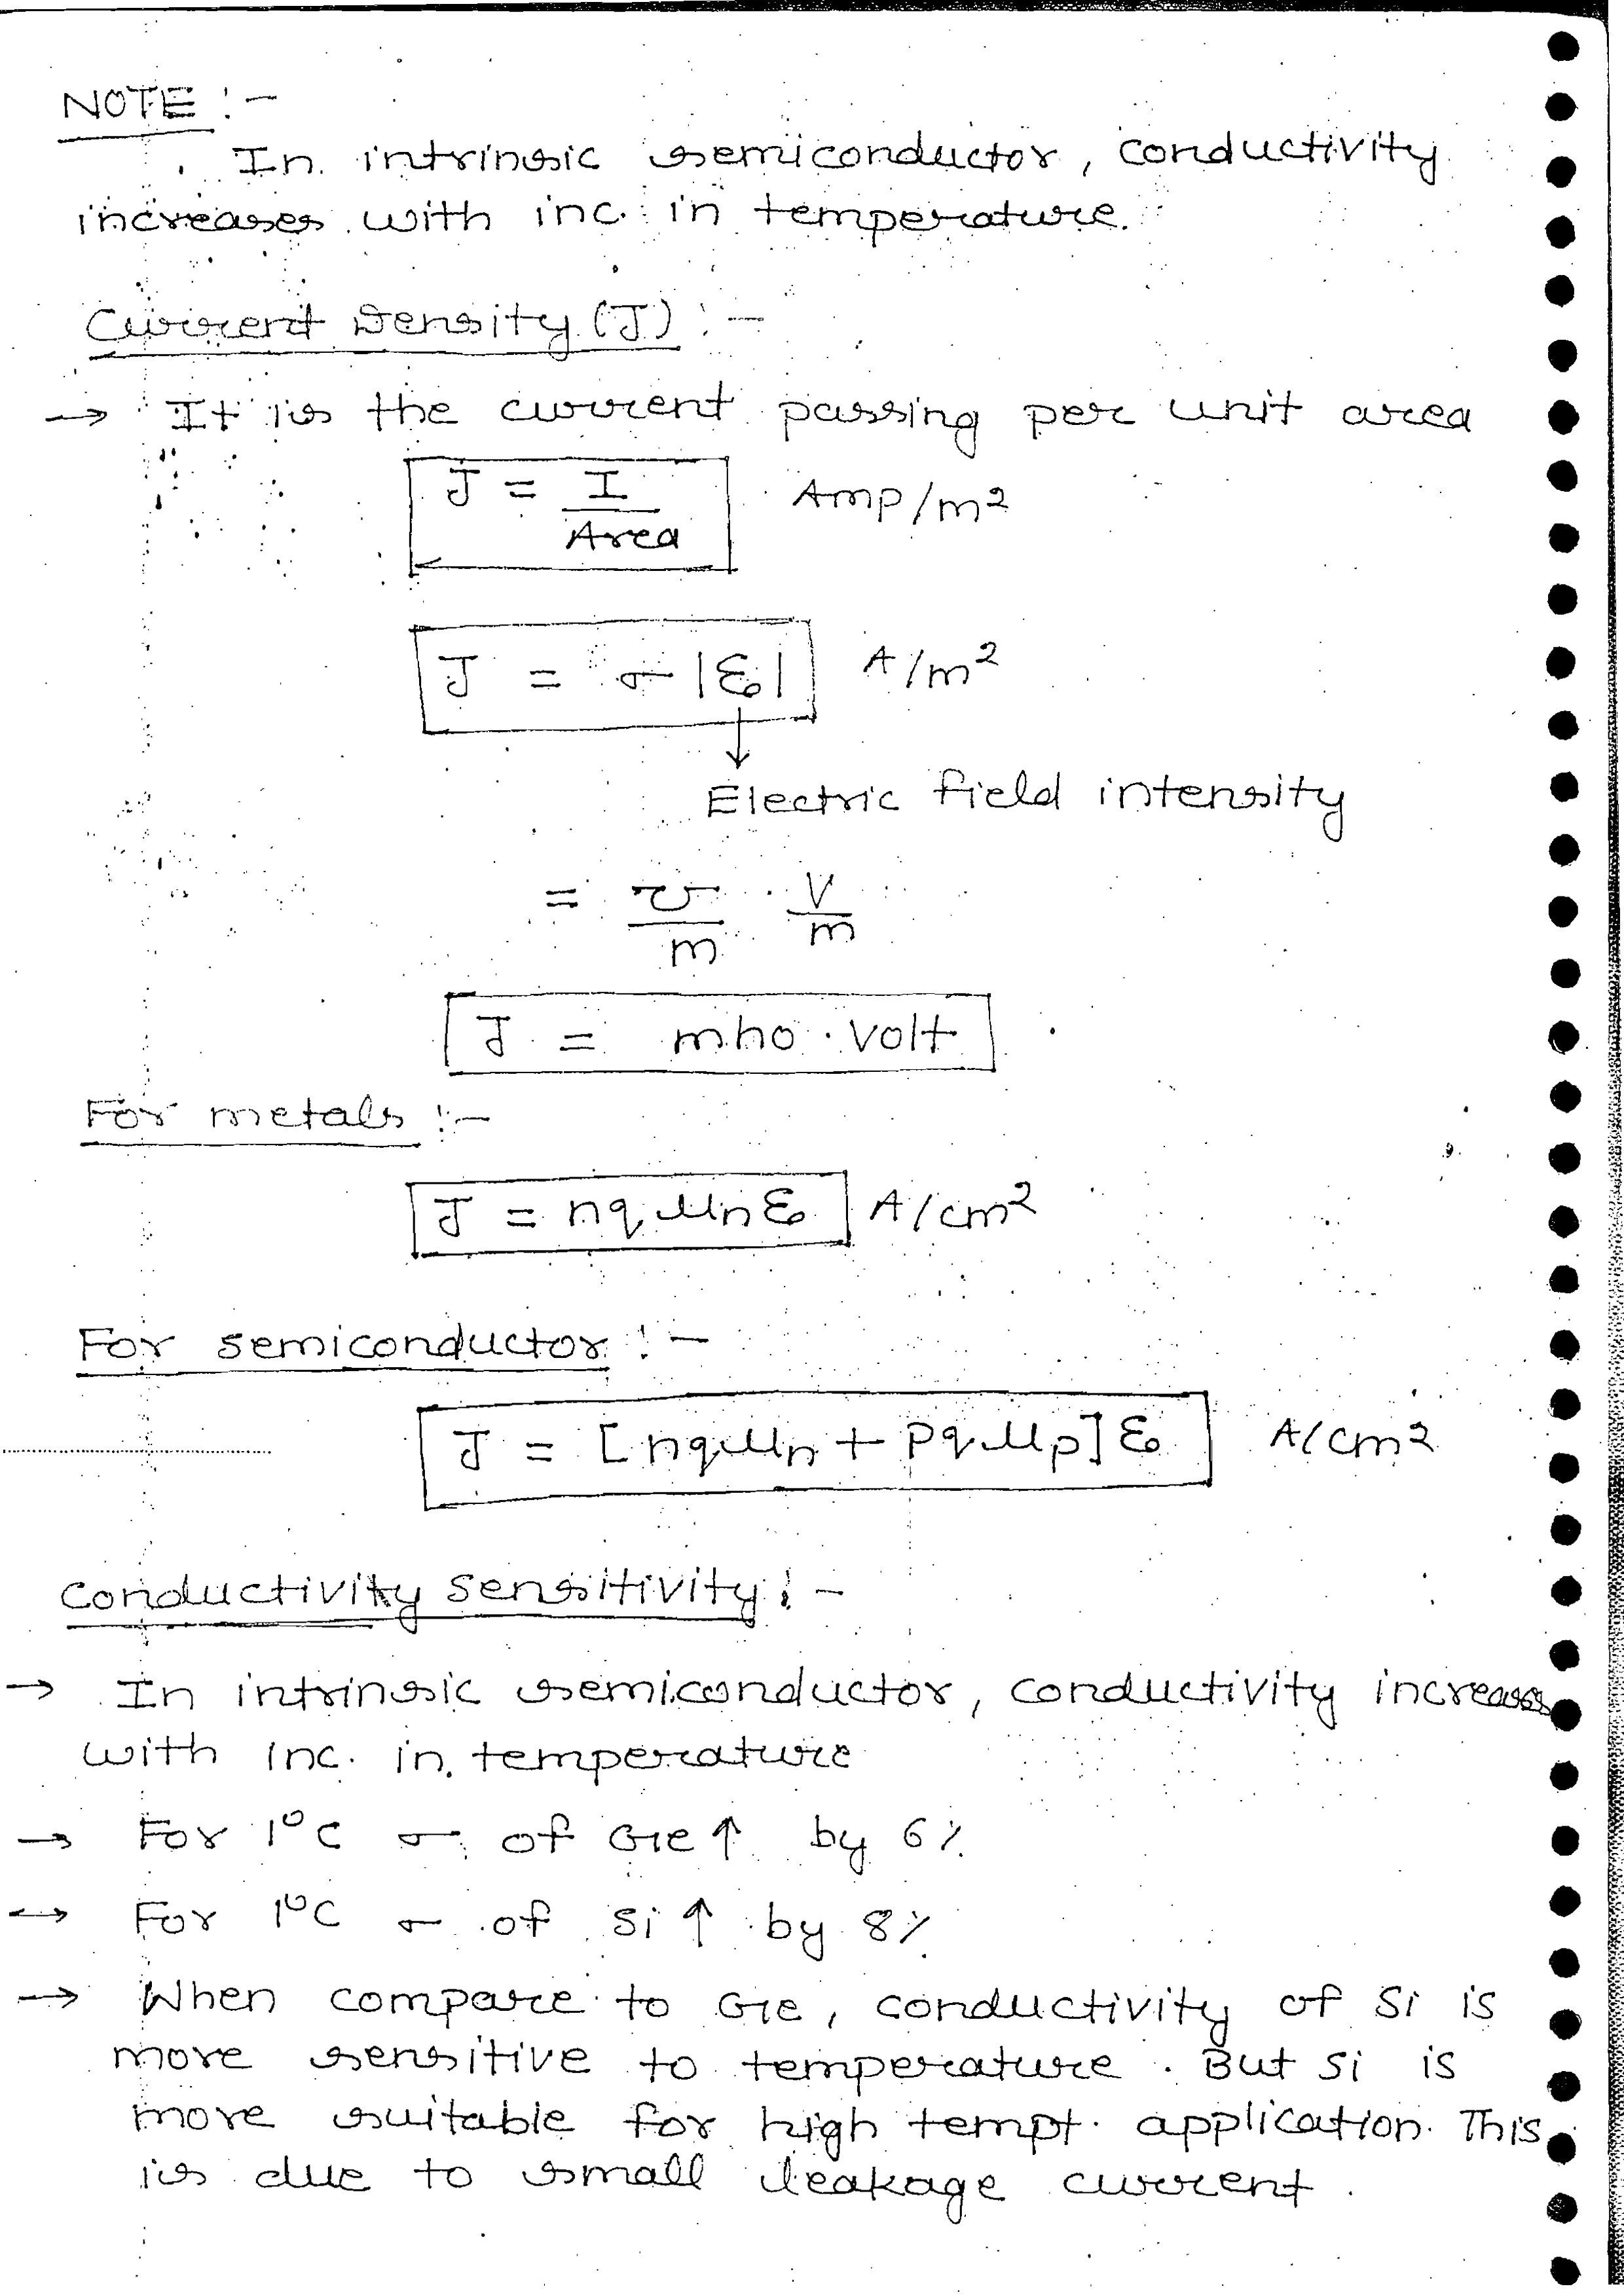 NOTE :-
In intrinsic semiconductor, conductivity
increases with inc. in temperature.
Current Density (J) :-
→ It is the current passing per unit area
J = I / Area Amp/m²
J = σ |Ɛ| A/m²
↓
Electric field intensity
= ℧/m · V/m
J = mho · volt
For metals :-
J = nqμnƐ A/cm²
For semiconductor :-
J = [nqμn + pqμp] Ɛ A/cm²
Conductivity sensitivity :-
→ In intrinsic semiconductor, conductivity increases
with inc. in temperature
→ For 1°C σ of Ge ↑ by 6%
→ For 1°C σ of Si ↑ by 8%
→ When compare to Ge, conductivity of Si is
more sensitive to temperature. But Si is
more suitable for high tempt. application. This
is due to small leakage current.